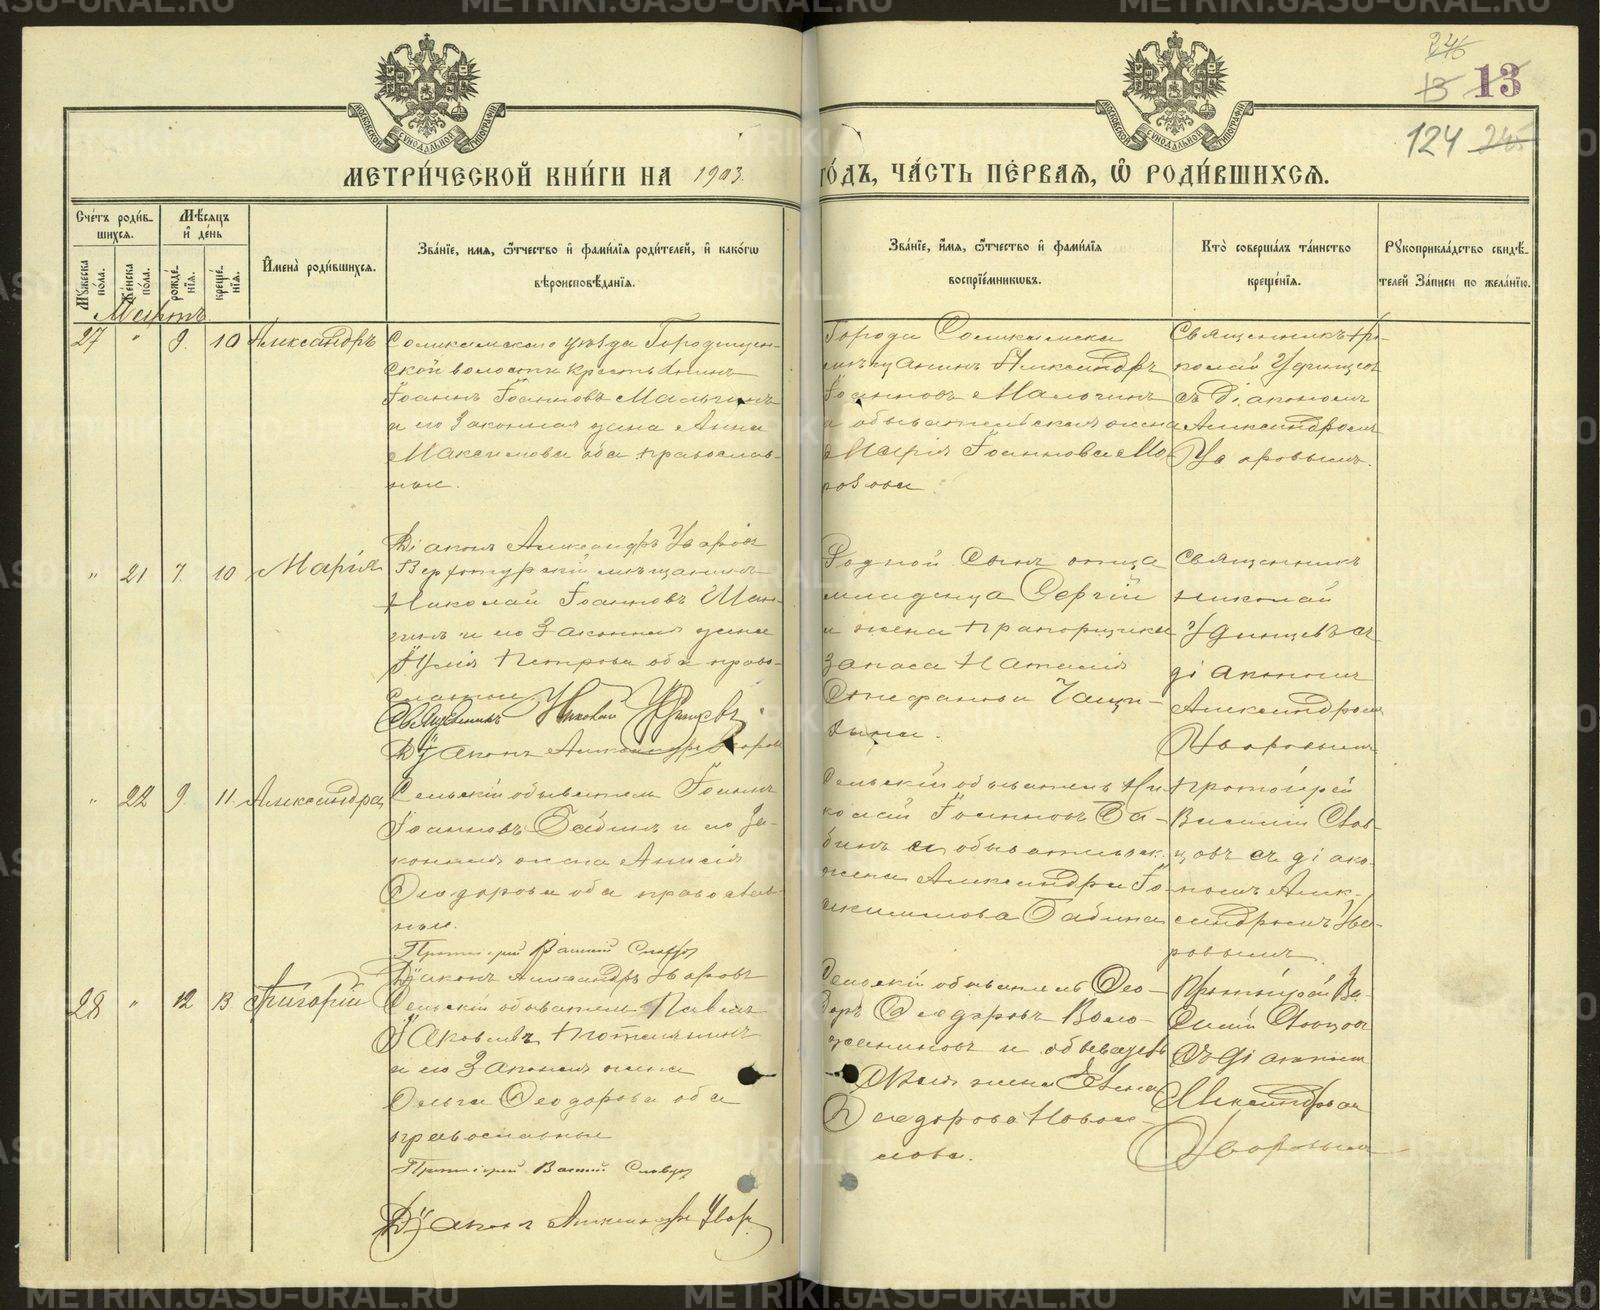 246
13 13
124 245
МЕТРИ́ЧЕСКОЙ КНИ́ГИ НА 1903 ГО́ДЪ, ЧА́СТЬ ПЕ́РВАЯ, Ѿ РОДИ́ВШИХСЯ.
Сче́тъ роди́вшихся.
Мꙋ́жеска по́ла.
Же́нска по́ла.
Мѣ́сяцъ и҆ де́нь
рожде́нїя.
креще́нїя.
И҆мена̀ роди́вшихся.
Зва́нїе, имя, ѻ҆́тчество и҆ фами́лїя роди́телей, и҆ како́гѡ
вѣроисповѣ́данїя.
Зва́нїе, и҆́мя, ѻ҆́тчество и҆ фами́лїя
воспрїе́мникѡвъ.
Кто̀ соверша́лъ та́инство
креще́нїя.
Рꙋкоприкла́дство свидѣ́
телей За́писи по жела́нїю.
Мартъ
27 " 9. 10 Александръ
Соликамскаго уѣзда Городищен-
ской волости крестьянинъ
Іоаннъ Іоанновъ Мальгинъ
и его законная жена Анна
Максимова оба православ-
ные.
Города Соликамска
мѣщанинъ Александръ
Іоанновъ
и обывательская жена
Марія Іоаннова Мо-
розова
Священникъ Ни-
колай Удинцевъ
съ Діакономъ
Александромъ
Уваровымъ.
Діаконъ Александръ Уваровъ
" 21 7. 10 Марія
Верхотурскій мѣщанинъ
Николай Іоанновъ
и его законная жена
Юлія Петрова оба право-
славные
Священникъ Николай Удинцевъ
Діаконъ Александръ Уваровъ
Родной сынъ отца
младенца Сергій
и жена прапорщика
запаса Наталія
Стефанова
Священникъ
Николай
Удинцевъ съ
діакономъ
Александромъ
Уваровымъ
" 22 9 11. Александра
Сельскій обыватель Іоаннъ
Іоанновъ Бабинъ и его за-
конная жена Анисія
Ѳеодорова оба православ-
ные.
Протоіерей Василій Словцовъ
Діаконъ Александръ Уваровъ
Сельскій обыватель Ни-
колай Іоанновъ Ба-
бинъ и обывательск.
жена Александра
Бабина
Протоіерей
Василій Слов-
цовъ съ діако-
номъ Алек-
сандромъ Ува-
ровымъ.
28 " 12 13 Григорій
Сельскій обыватель Павелъ
Яковлевъ Потеряинъ
и его законная жена
Ольга Ѳеодорова оба
православные
Протоіерей Василій Словцовъ
Діаконъ Александръ Уваровъ
Сельскій обыватель Ѳео-
доръ Ѳеодоровъ Воло-
жениновъ и обыватель
ская жена Елена
Ѳеодорова Новосе-
лова.
Протоіерей Ва-
силій Словцовъ
съ діакономъ
Александромъ
Уваровымъ
METRIKI.GASO-URAL.RU